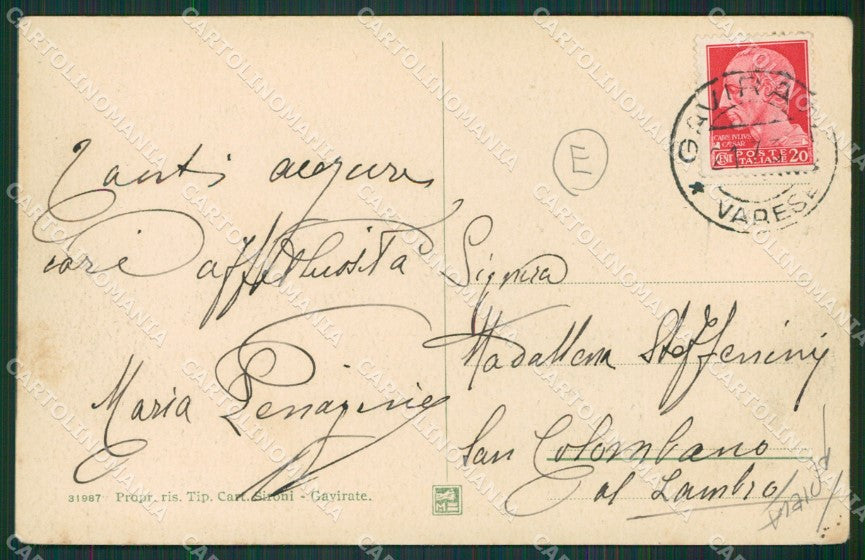 Tanti auguri
cari affettuosità
Maria
Signora
Maddalena Steffenini
San Colombano
al Lambro
E
GAVIRA
VARESE
CAIVS IVLIVS
CÆSAR
CENT POSTE ITALIANE 20
31987 Propr. ris. Tip. Cart. Sironi - Gavirate.
CARTOLINOMANIA